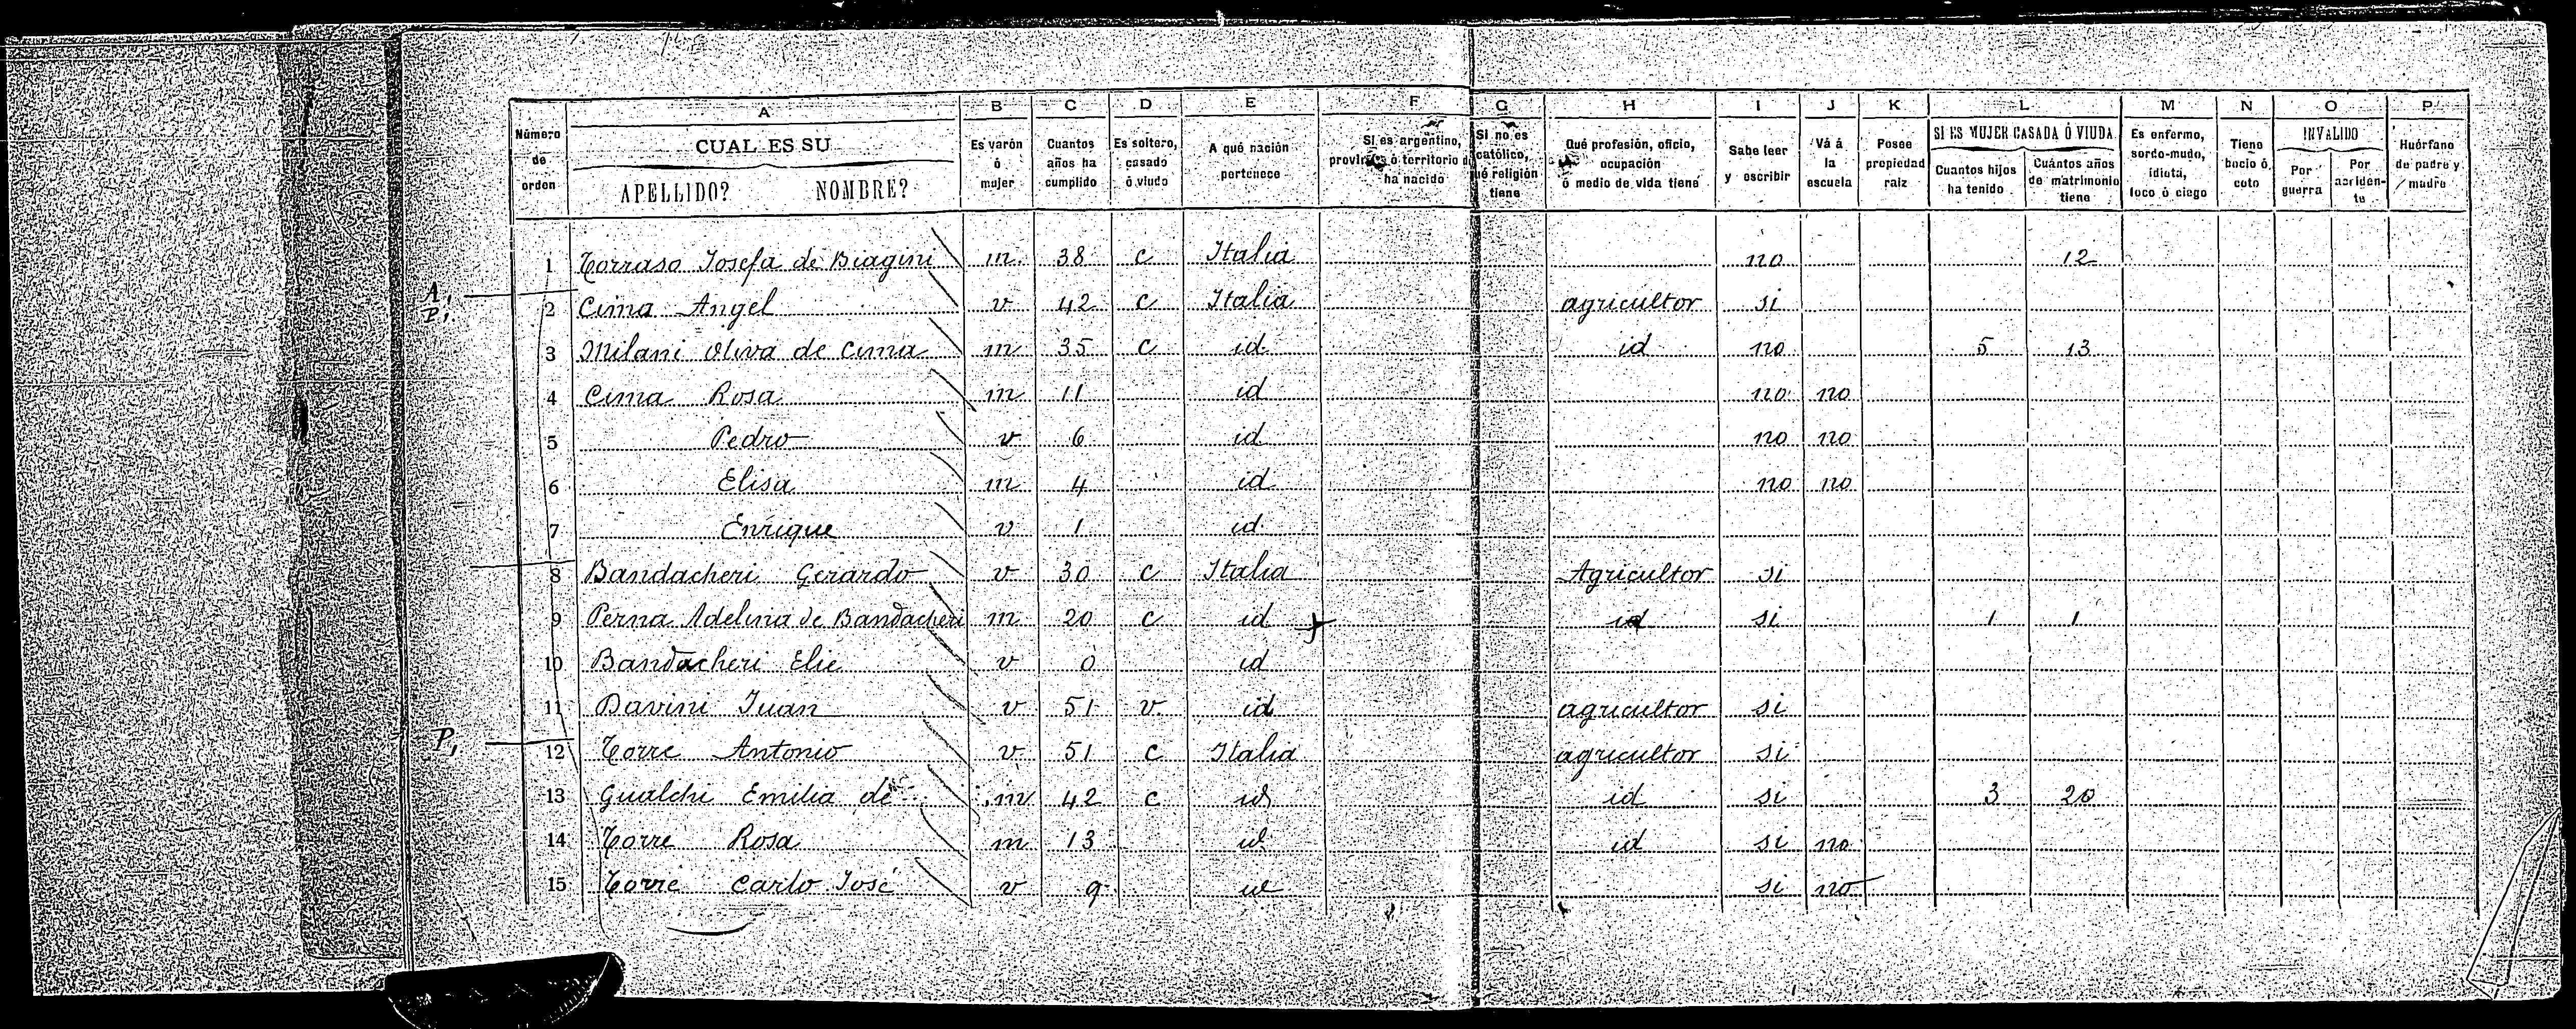 A B C D E F G H I J K L M N O P
Número de orden
CUAL ES SU
APELLIDO? NOMBRE?
Es varón ó mujer
Cuantos años ha cumplido
Es soltero, casado ó viudo
A qué nación pertenece
Si es argentino, provincia ó territorio ha nacido
Si no es católico, qué religión tiene
Qué profesión, oficio, ocupación ó medio de vida tiene
Sabe leer y escribir
Vá á la escuela
Posee propiedad raiz
SI ES MUJER CASADA Ó VIUDA
Cuantos hijos ha tenido
Cuántos años de matrimonio tiene
Es enfermo, sordo-mudo, idiota, loco ó ciego
Tiene bocio ó coto
INVALIDO
Por guerra
Por acciden-te
Huérfano de padre y madre
1 Torraso Josefa de Biagini m 38 c Italia no 12
A, P,
2 Cima Angel v 42 c Italia agricultor si
3 Milani Oliva de Cima m 35 c id id no 5 13
4 Cima Rosa m 11 id no no
5 Pedro v 6 id no no
6 Elisa m 4 id no no
7 Enrique v 1 id
8 Bandacheri Gerardo v 30 c Italia Agricultor si
9 Perna Adelina de Bandacheri m 20 c id id si 1 1
10 Bandacheri Elie v 0 id
11 Davini Juan v 51 v id agricultor si
P,
12 Torre Antonio v 51 c Italia agricultor si
13 Gualchi Emilia de m 42 c id id si 3 20
14 Torre Rosa m 13 id id si no
15 Torre Carlo José v 9 id si no